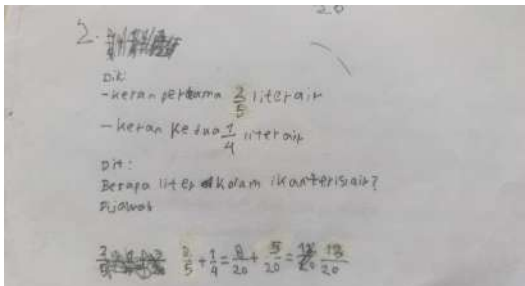 20
2.
Dik:
- Keran pertama 2/5 liter air
- Keran Kedua 1/4 liter air
Dit:
Berapa liter Kolam ikan terisi air?
Dijawab
2/5 + 1/4 = 8/20 + 5/20 = 13/20